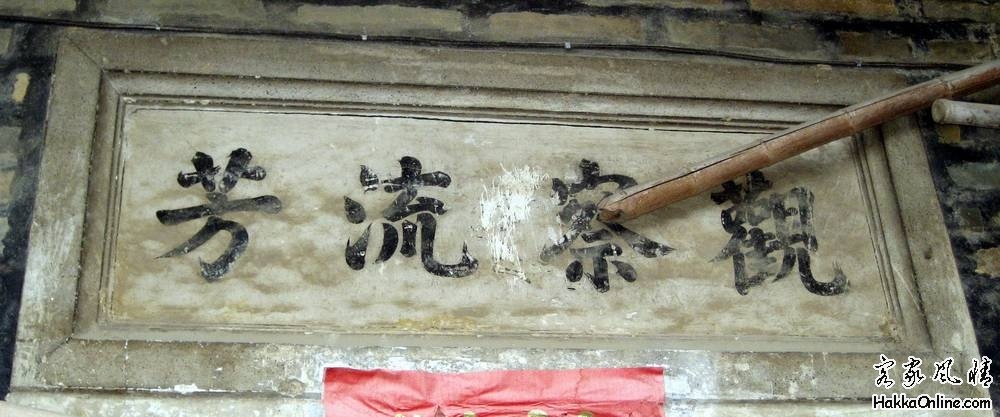 觀察流芳
客家風情
HakkaOnline.com